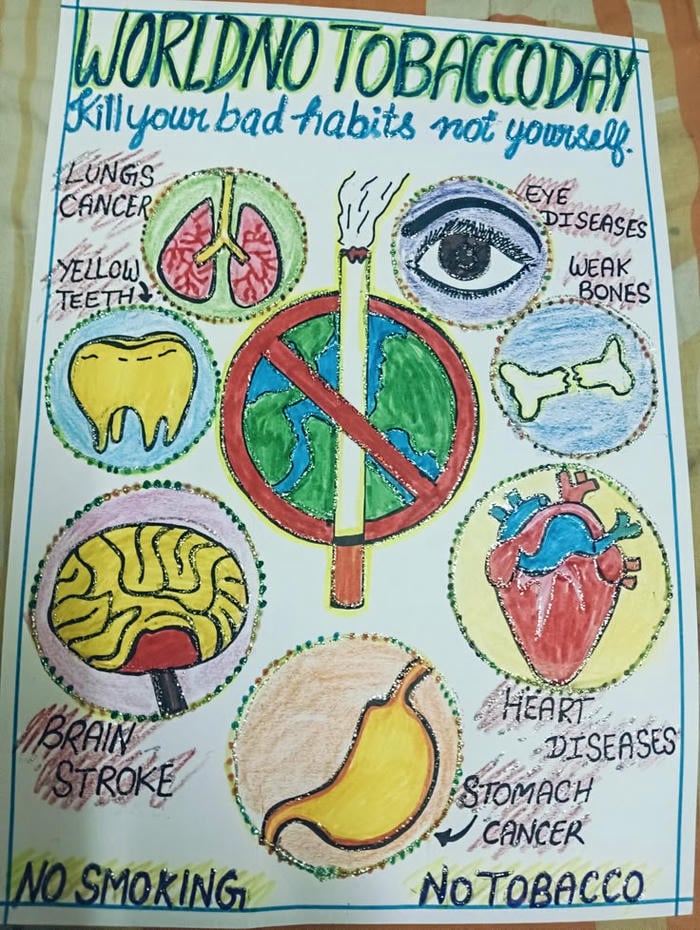 WORLD NO TOBACCO DAY
Kill your bad habits not yourself.
LUNGS
CANCER
EYE
DISEASES
YELLOW
TEETH
WEAK
BONES
BRAIN
STROKE
HEART
DISEASES
STOMACH
CANCER
NO SMOKING
NO TOBACCO